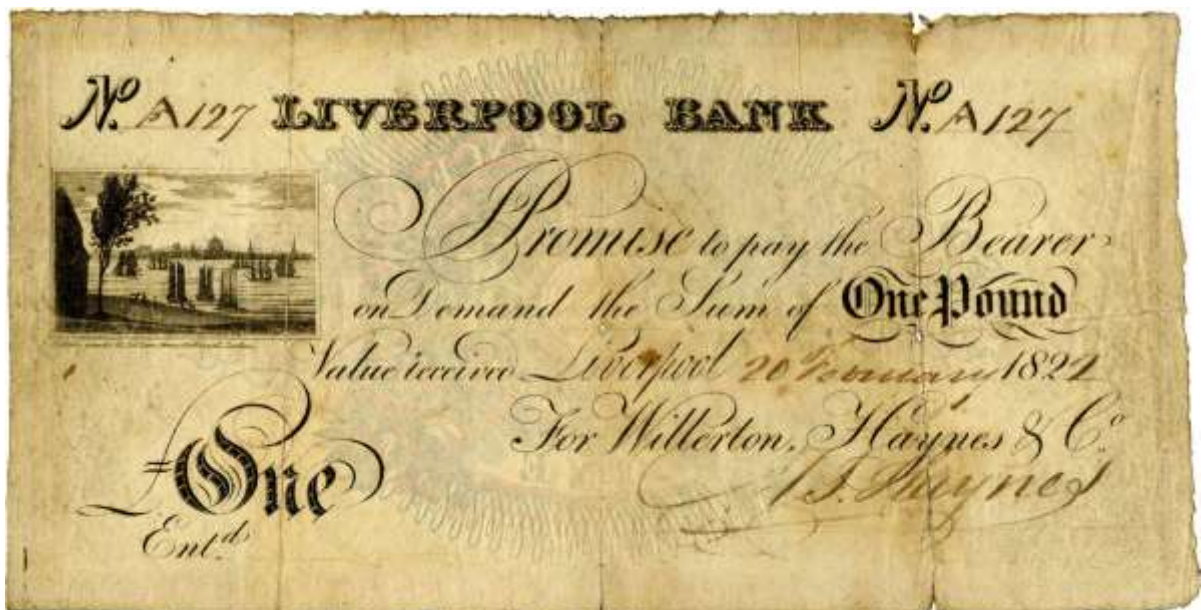 No. A127 LIVERPOOL BANK No. A127
I Promise to pay the Bearer
on Demand the Sum of One Pound
Value received Liverpool 20 February 1822
For Willerton, Haynes & Co.
£One
Entd.